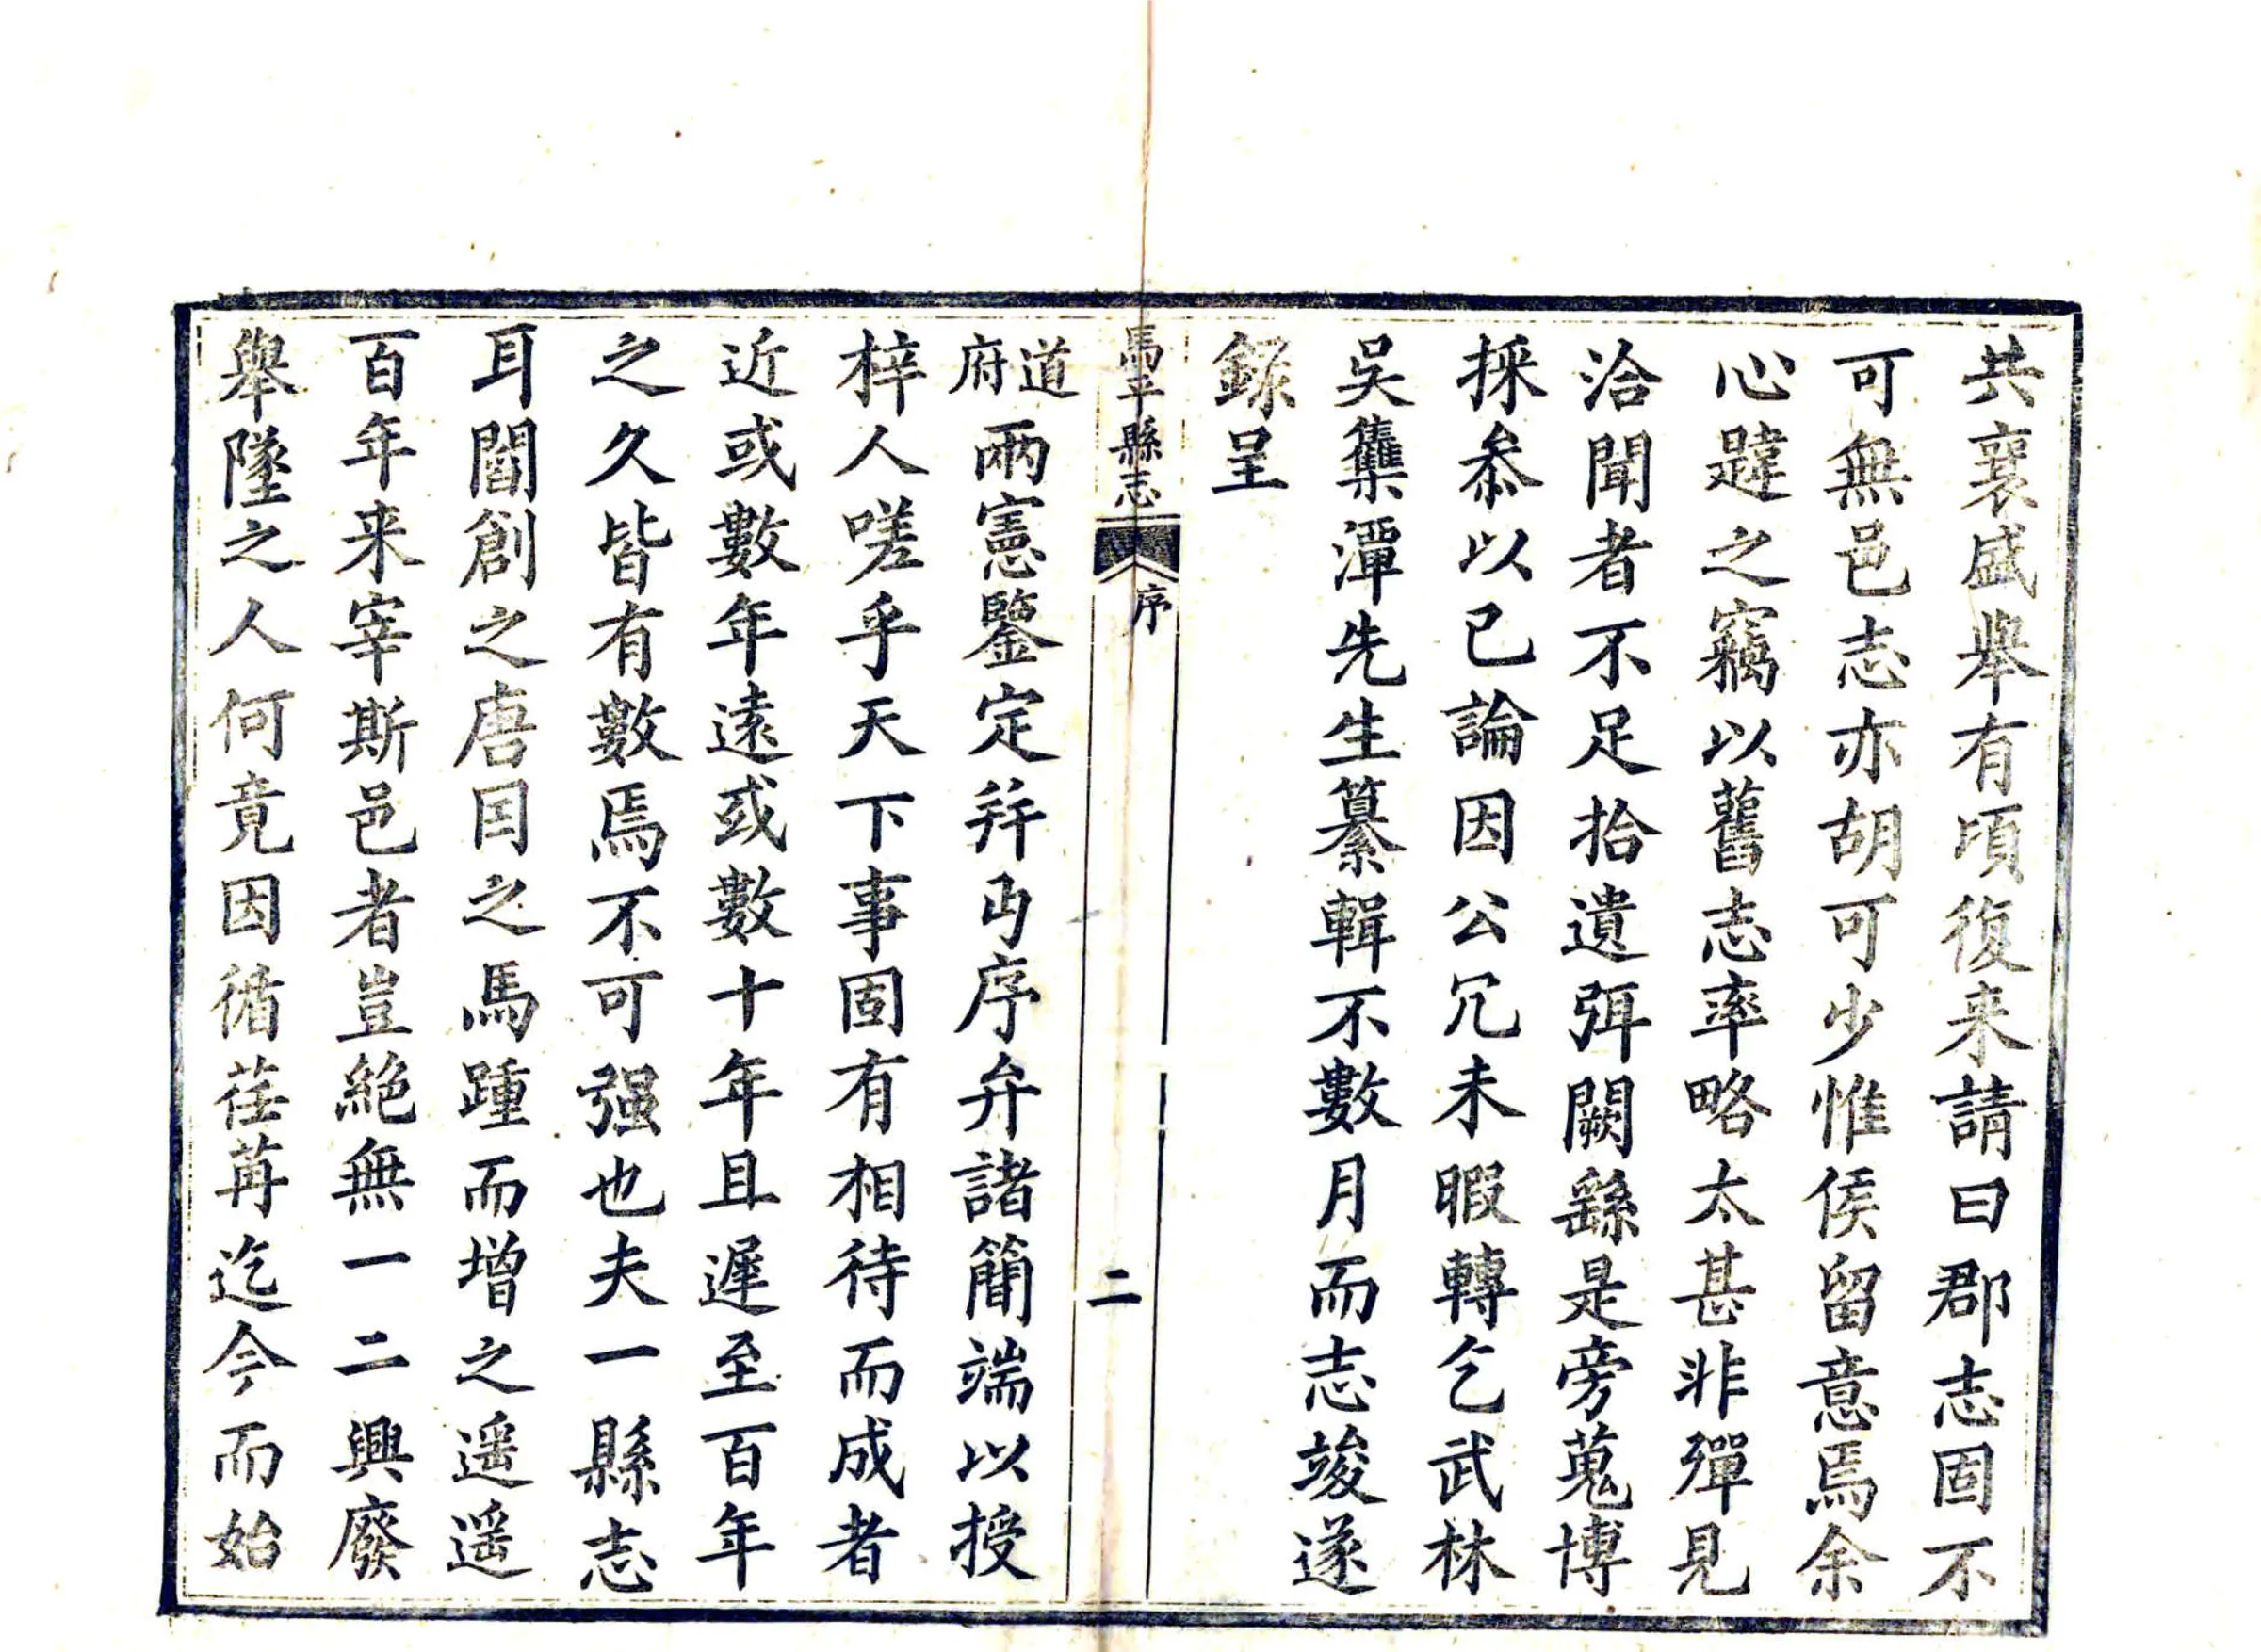 共襄盛舉有頃復来請曰郡志固不
可無邑志亦胡可少惟侯留意焉余
心韙之竊以舊志率略太甚非殫見
洽聞者不足拾遺弭闕繇是旁蒐博
採叅以已論因公冗未暇轉乞武林
吳雧潭先生纂輯不數月而志竣遂
錄呈
馬平縣志 序 二
道府兩憲鑒定并丏序弁諸簡端以授
梓人嗟乎天下事固有相待而成者
近或數年遠或數十年且遲至百年
之久皆有數焉不可强也夫一縣志
耳閻創之唐因之馬踵而增之遥遥
百年来宰斯邑者豈絕無一二興廢
舉墜之人何竟因循荏苒迄今而始